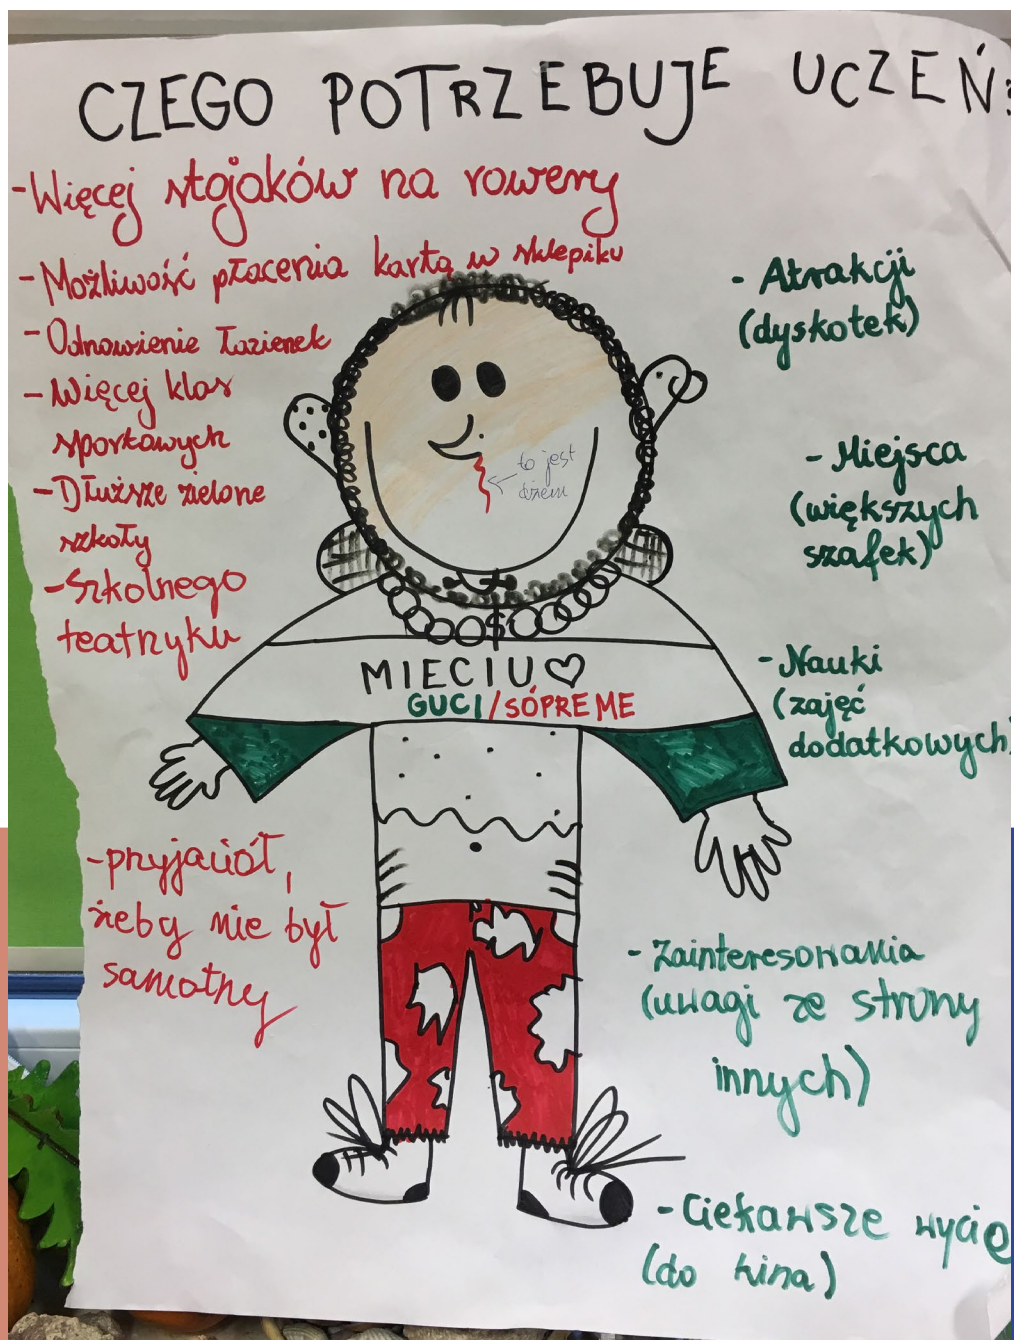 CZEGO POTRZEBUJE UCZEŃ?
-Więcej stojaków na rowery
-Możliwość płacenia kartą w sklepiku
-Odnowienie łazienek
-Więcej klas
sportowych
-Dłuższe zielone
szkoły
-Szkolnego
teatrzyku
-przyjaciół,
żeby nie był
samotny
to jest
dżem
MIECIU♡
GUCI/SÓPREME
- Atrakcji
(dyskotek)
- Miejsca
(większych
szafek)
-Nauki
(zajęć
dodatkowych)
- Zainteresowania
(uwagi ze strony
innych)
-Ciekawsze wycie
(do kina)